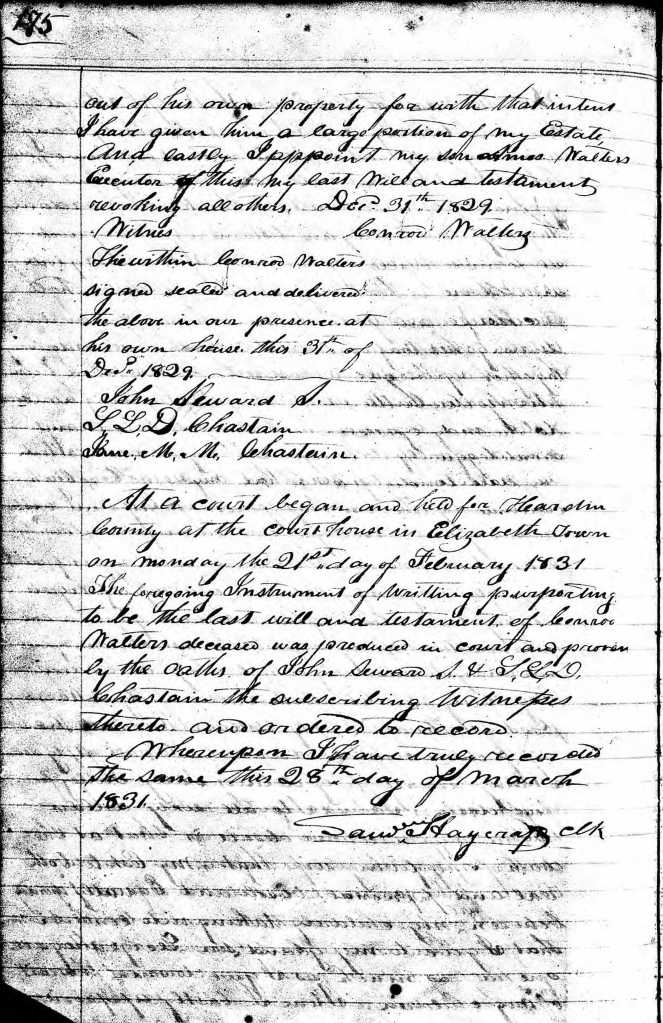 175
out of his own property for with that intent
I have given him a large portion of my Estate
And lastly I appoint my son Amos Walters
Executor of this my last Will and testament
revoking all others. Decr. 31th 1829
Witnes Conrod Walters
The within Conrod Walters
signed sealed and delivered
the above in our presence at
his own house this 31th of
Decr. 1829
John Seward S.
S. L. D. Chastain
Jane. M. M. Chastain.
At a court began and held for Heardin
County at the court house in Elizabeth Town
on monday the 21st day of February 1831
The foregoing Instrument of Writting purporting
to be the last will and testament of Conrod
Walters deceased was produced in court and proven
by the oaths of John Seward S. & S. L. D.
Chastain the subscribing Witnesses
thereto and ordered to record.
Whereupon I have truly recorded
the same this 28th day of March
1831
Saml. Haycraft clk